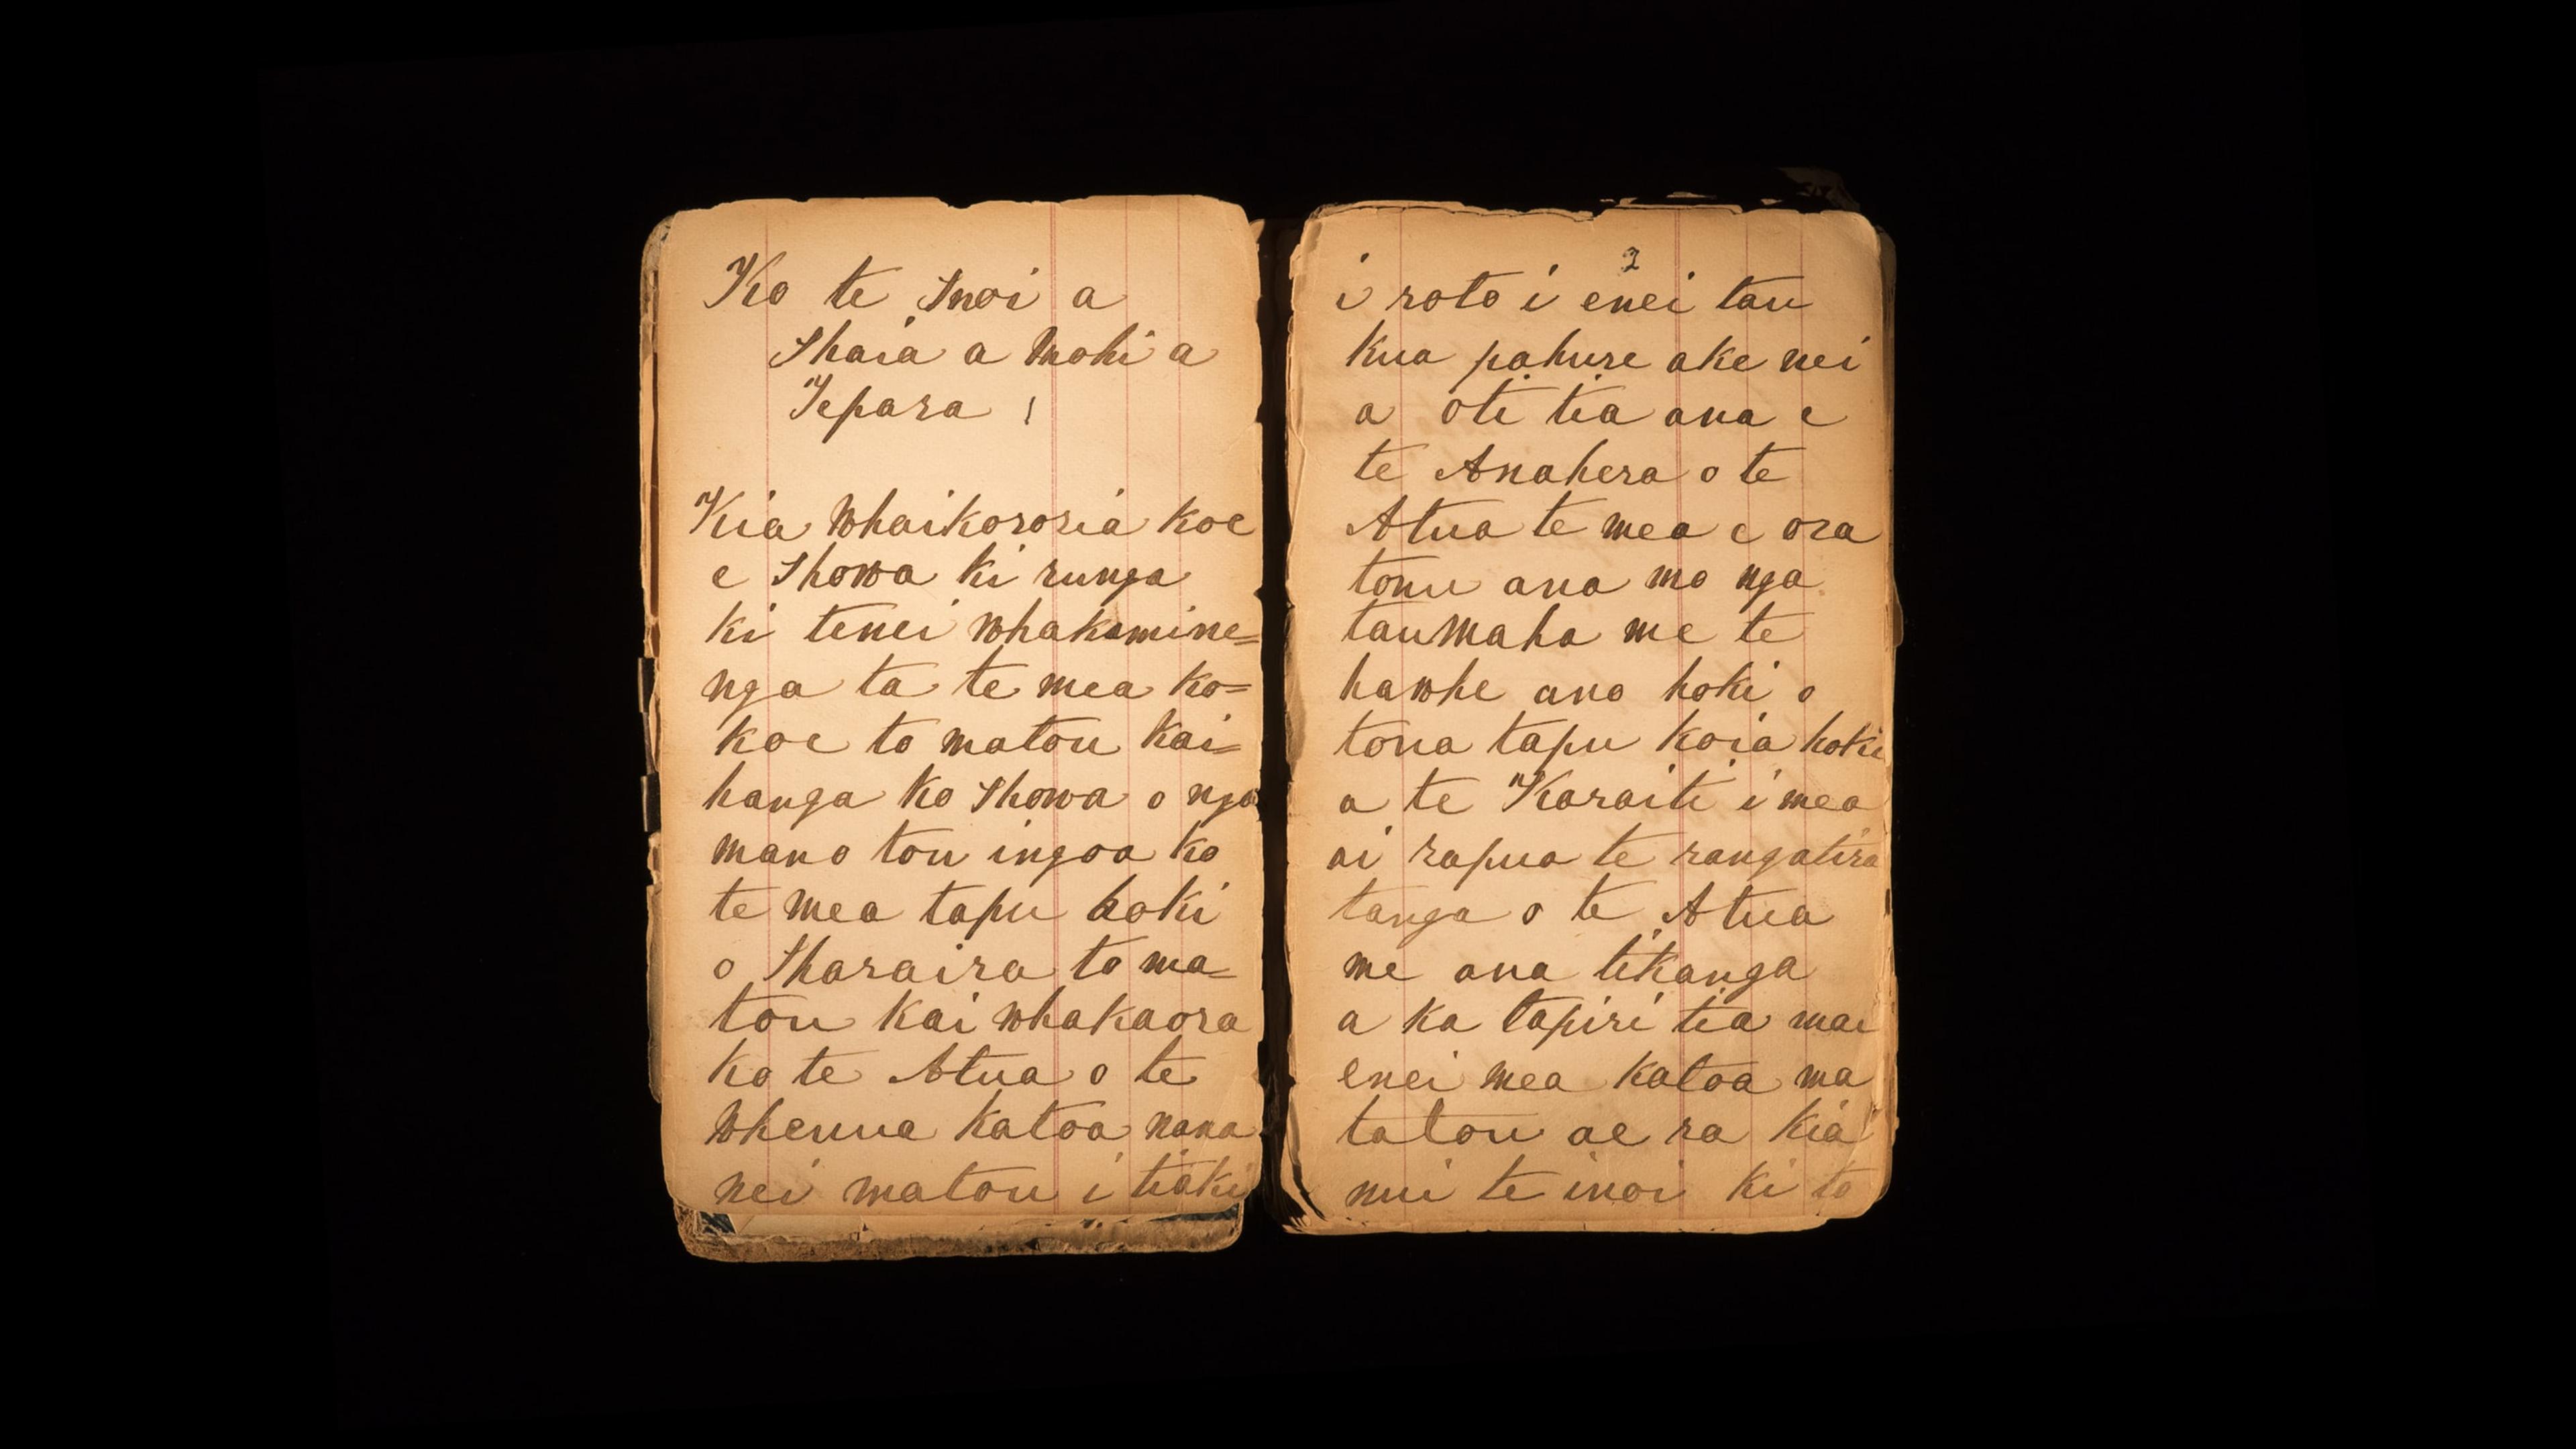 Ko te Inoi a
Ihaia a Mohi a
Tepara
Kia Whaikororia koe
e Ihowa ki runga
ki tenei Whakamine=
nga ta te mea ko=
koe to matou Kai=
hanga ko Ihowa o nga
mano tou ingoa ko
te mea tapu hoki
o Iharaira to ma=
tou Kai Whakaora
ko te Atua o te
Whenua katoa nana
nei matou i tiaki
2
i roto i enei tau
kua pahure ake nei
a oti tia ana e
te Anahera o te
Atua te mea e ora
tonu ana mo nga
taumaha me te
hawhe ano hoki o
tona tapu koia hoki
a te Karaiti i mea
ai rapua te rangatira
tanga o te Atua
me ana tikanga
a ka tapiri tia mai
enei mea katoa ma
tatou ae ra kia
nui te inoi ki to